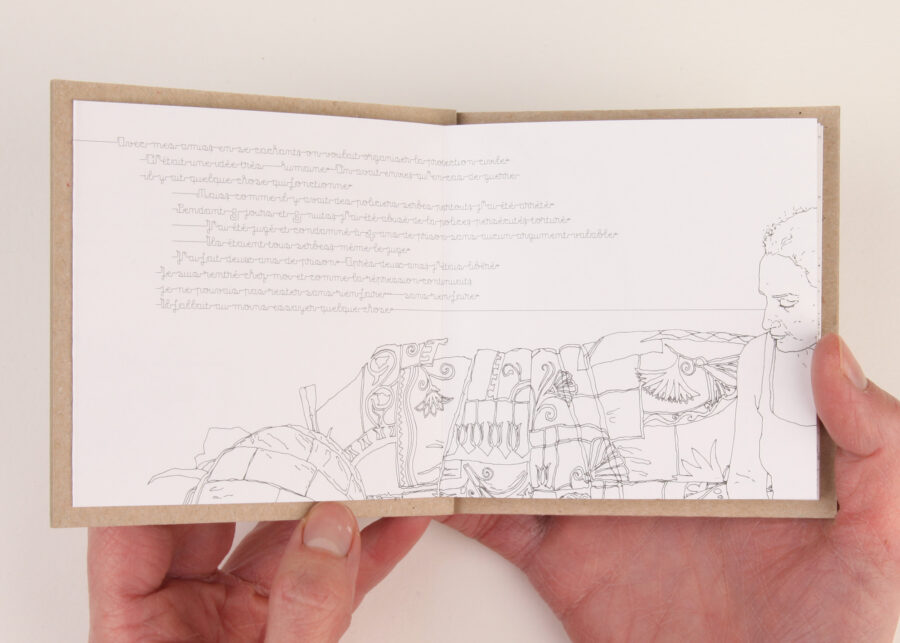 Avec mes amiss en se cachants on voulait organiser la protection civile
C'était une idée très humaine On avait envies qu'en cas de guerrer
il y ait quelque chose qui fonctionne
Maiss comme il y avait des policiers serbes partouts j'ai été arrêté
Pendant 8 jours et 8 nuitss j'ai été abusé de la polices persécutés torturé
J'ai été jugé et condamné à ans de prison sans aucun argument valable
Ils étaient tous serbess même le juge
J'ai fait deux ans de prison Après deux ans j'étais libéré
Je suis rentré chez moi et comme la répression continuait
je ne pouvais pas rester sans rien faire sans rien faire
Il fallait au moins essayer quelque chose